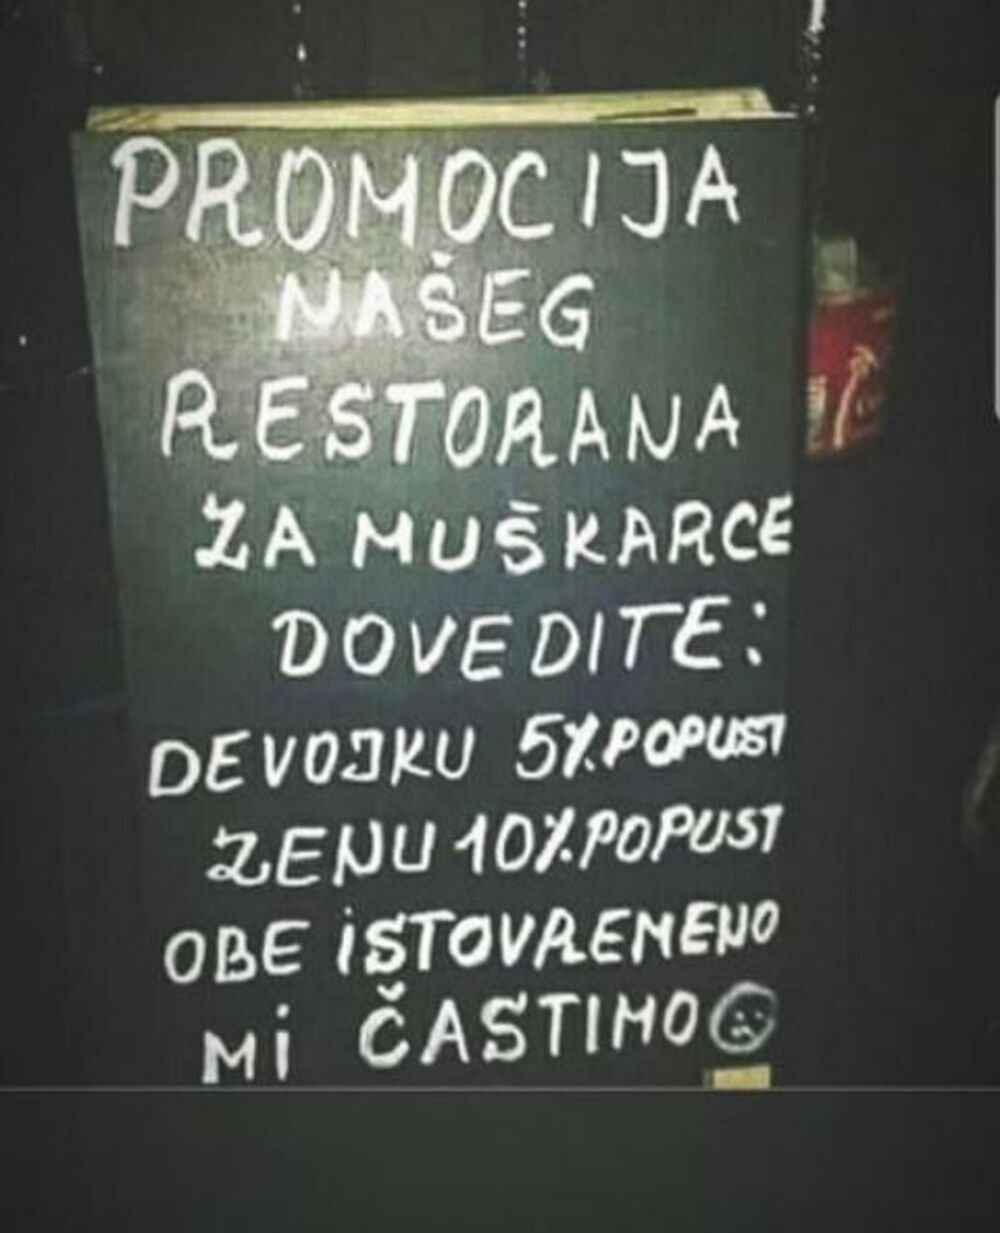 PROMOCIJA
NAŠEG
RESTORANA
ZA MUŠKARCE
DOVEDITE:
DEVOJKU 5% POPUST
ZENU 10% POPUST
OBE iSTOVREMENO
Mi ČASTIMO